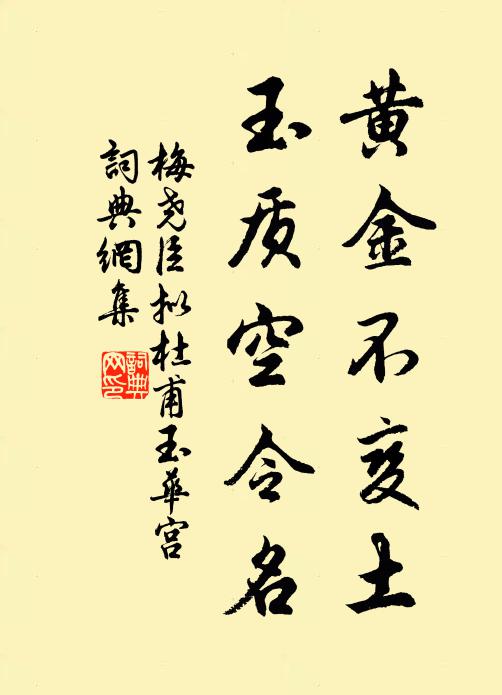 黄金不变土
玉质空令名
梅尧臣拟杜甫玉华宫
詞典網集
詞典网印